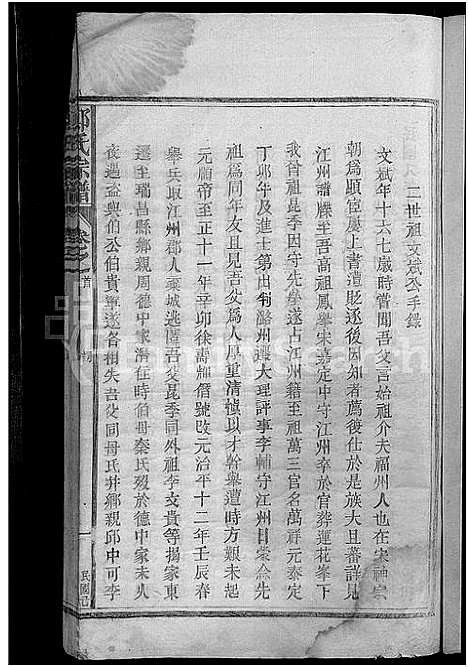 二世祖文斌公手錄
文斌年十六七歲時嘗聞吾父言始祖介夫福州人也在宋神宗
朝為顯宦屢上書遭貶逐後因知者薦復仕於是族大且蕃詳見
江州譜牒至吾高祖鳳舉宋嘉定中守江州卒於官葬蓮花峯下
我曾祖昆季因守先塋遂占江州籍至祖萬三官名萬祥元泰定
丁卯年及進士第出判潞州遷大理評事李輔守江州日棠念先
祖為同年友且見吾父為人厚重清楨以才幹舉遭時方艱未起
元順帝至正十一年辛卯徐壽輝僭號改元治平十二年壬辰春
舉兵取江州郡人棄城逃匿吾父昆季同外祖李文貴等揭家東
遷至瑞昌縣鄉親周德中家潛住時伯母秦氏歿於德中家未久
夜遇盜與伯公伯貴軍遂各相失吾父同母氏并鄉親邱中可李
氏宗譜
卷之首
一
民國